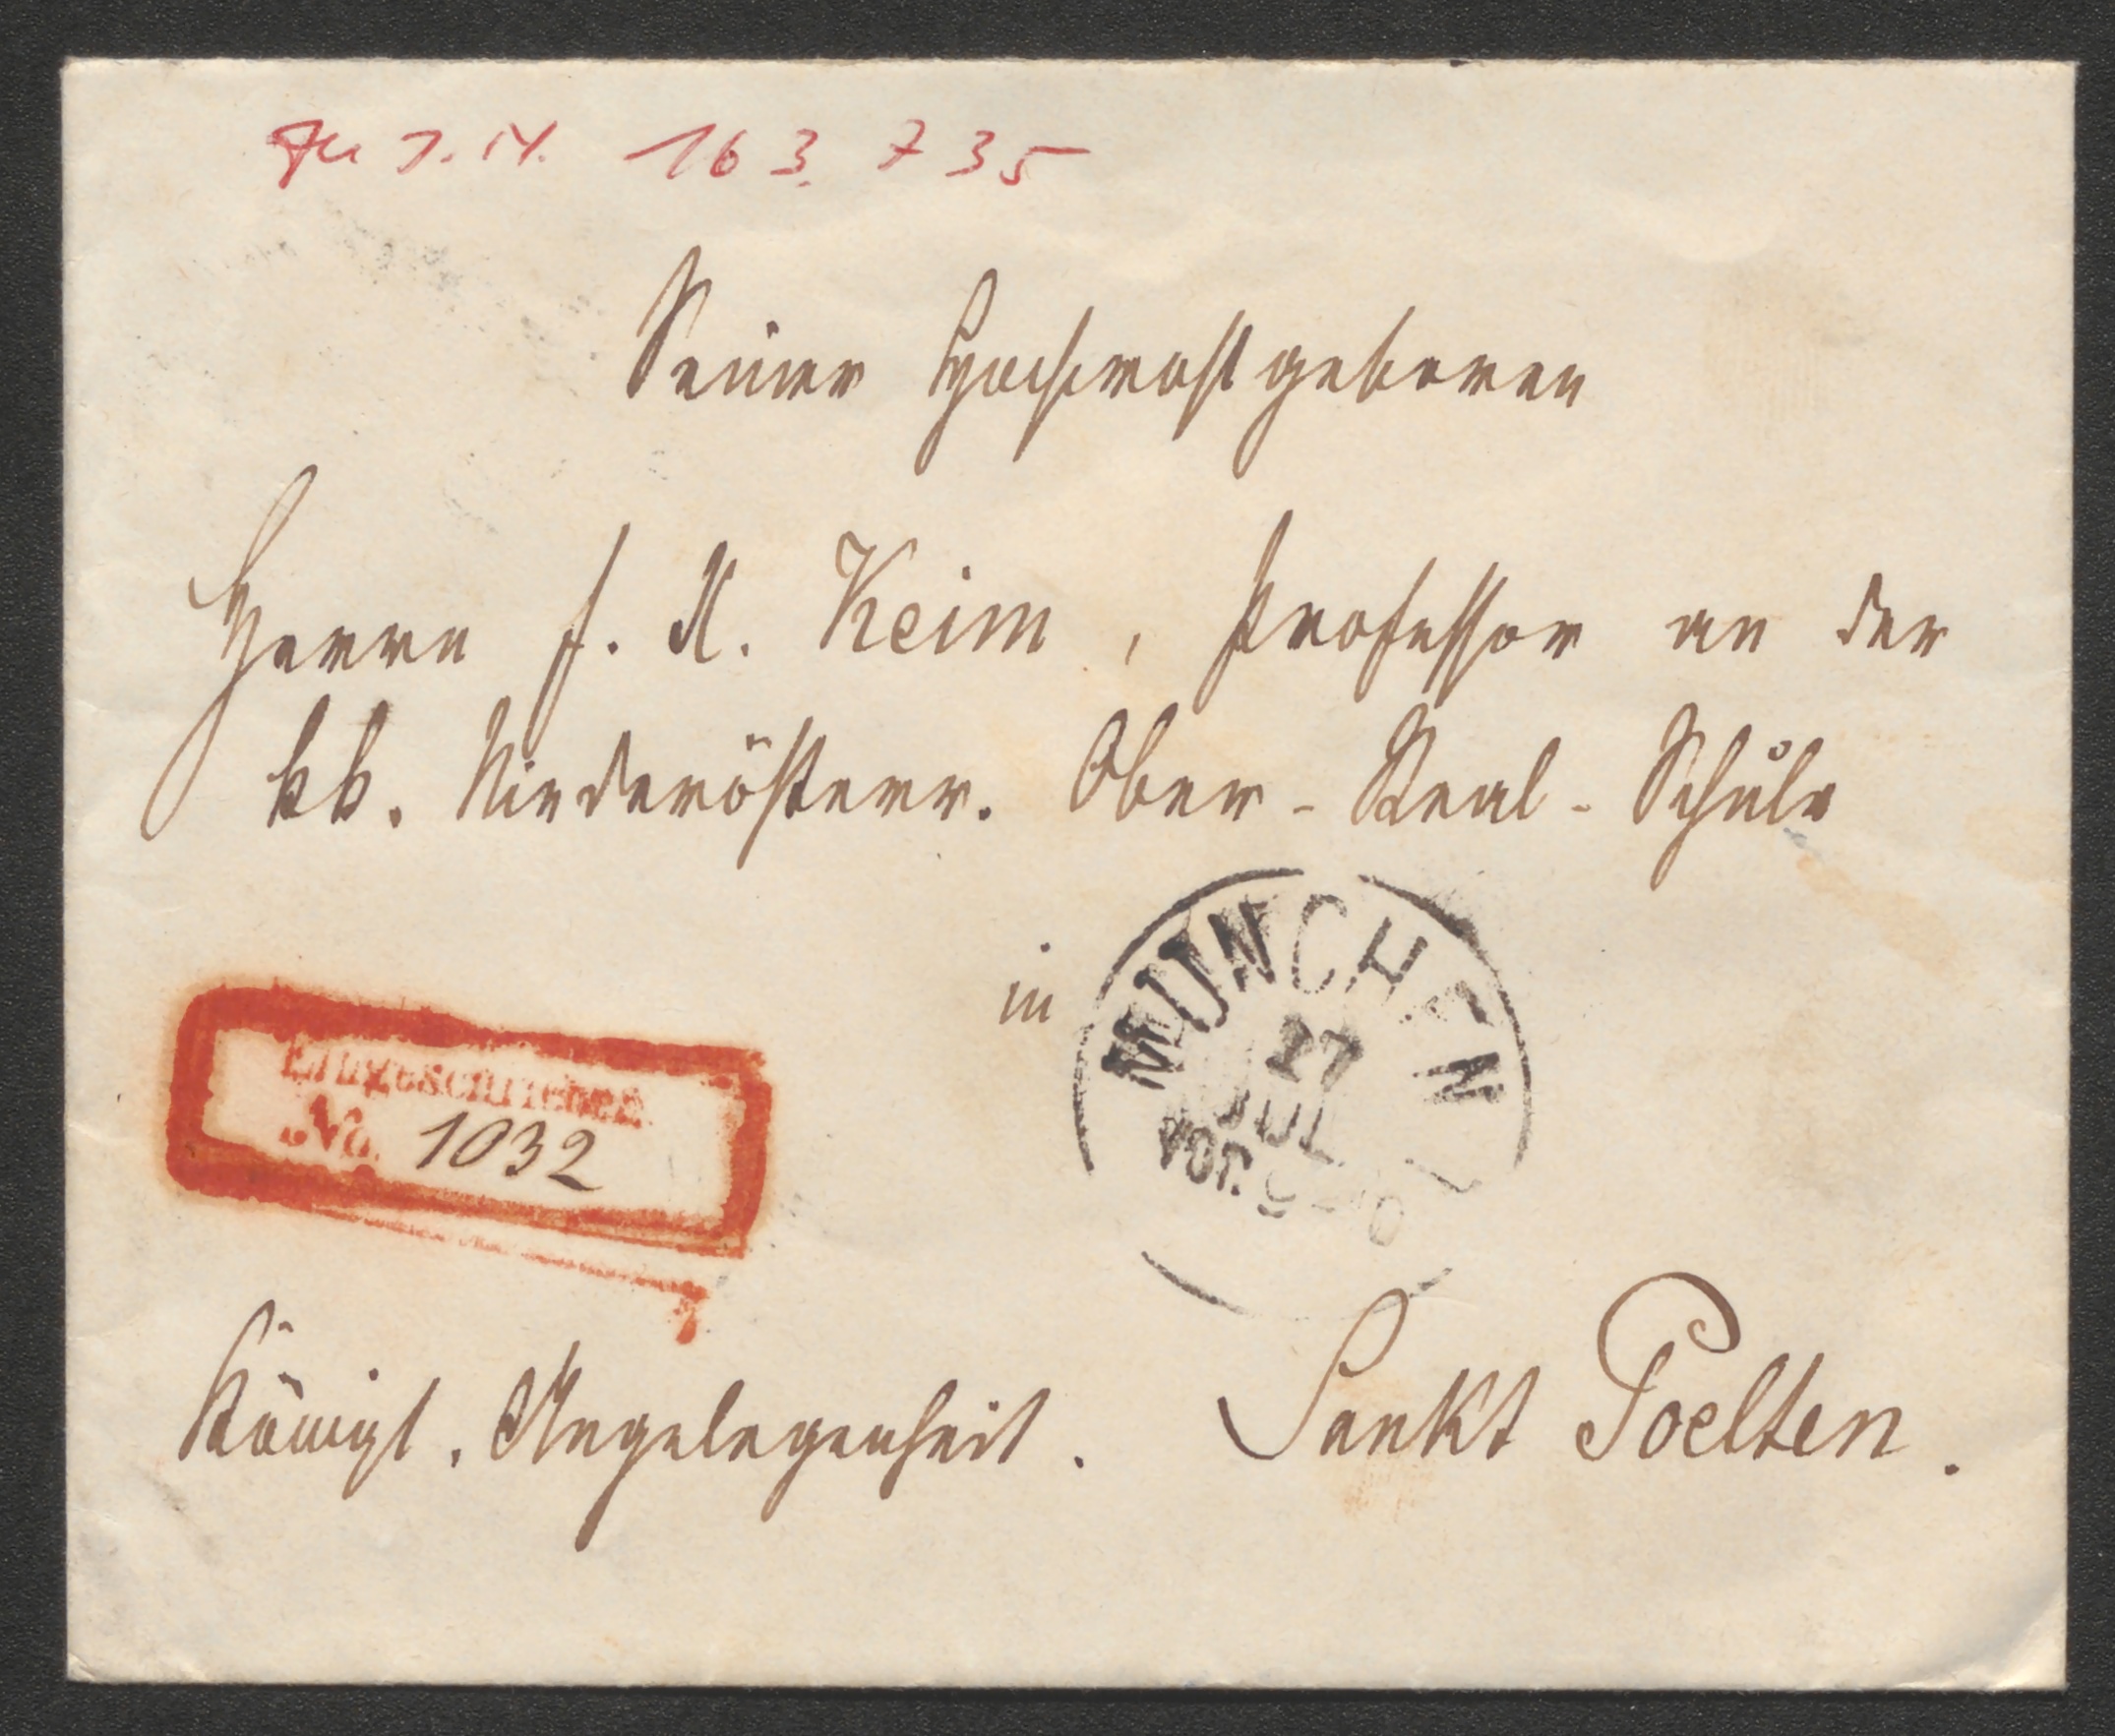 Zu J.N. 163.735
Seiner Hochwohlgeboren
Herrn F. X. Keim, Professor an der
kk. Niederösterr. Ober-Real-Schule
in
MÜNCHEN
27
JUL
VOR. 9-10
Eingeschrieben
No. 1032
Königl. Angelegenheit.
Sankt Poelten.